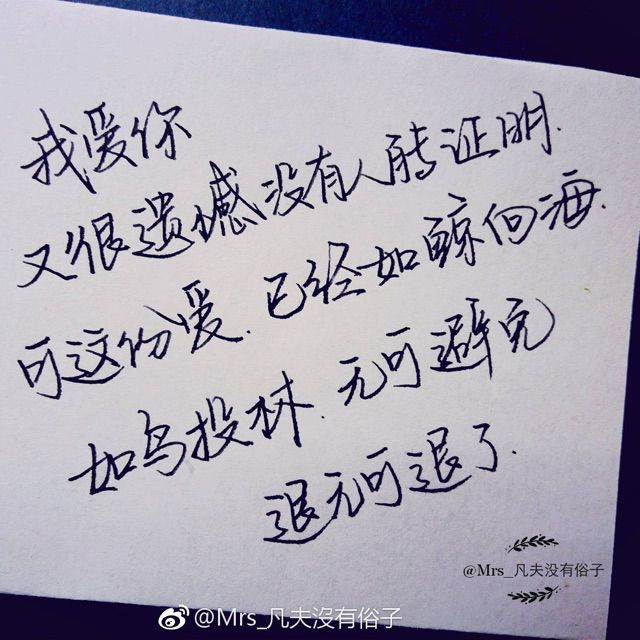 我爱你
又很遗憾没有人能证明.
可这份爱.已经如鲸向海.
如鸟投林.无可避免
退无可退了.
@Mrs_凡夫没有俗子
@Mrs_凡夫沒有俗子